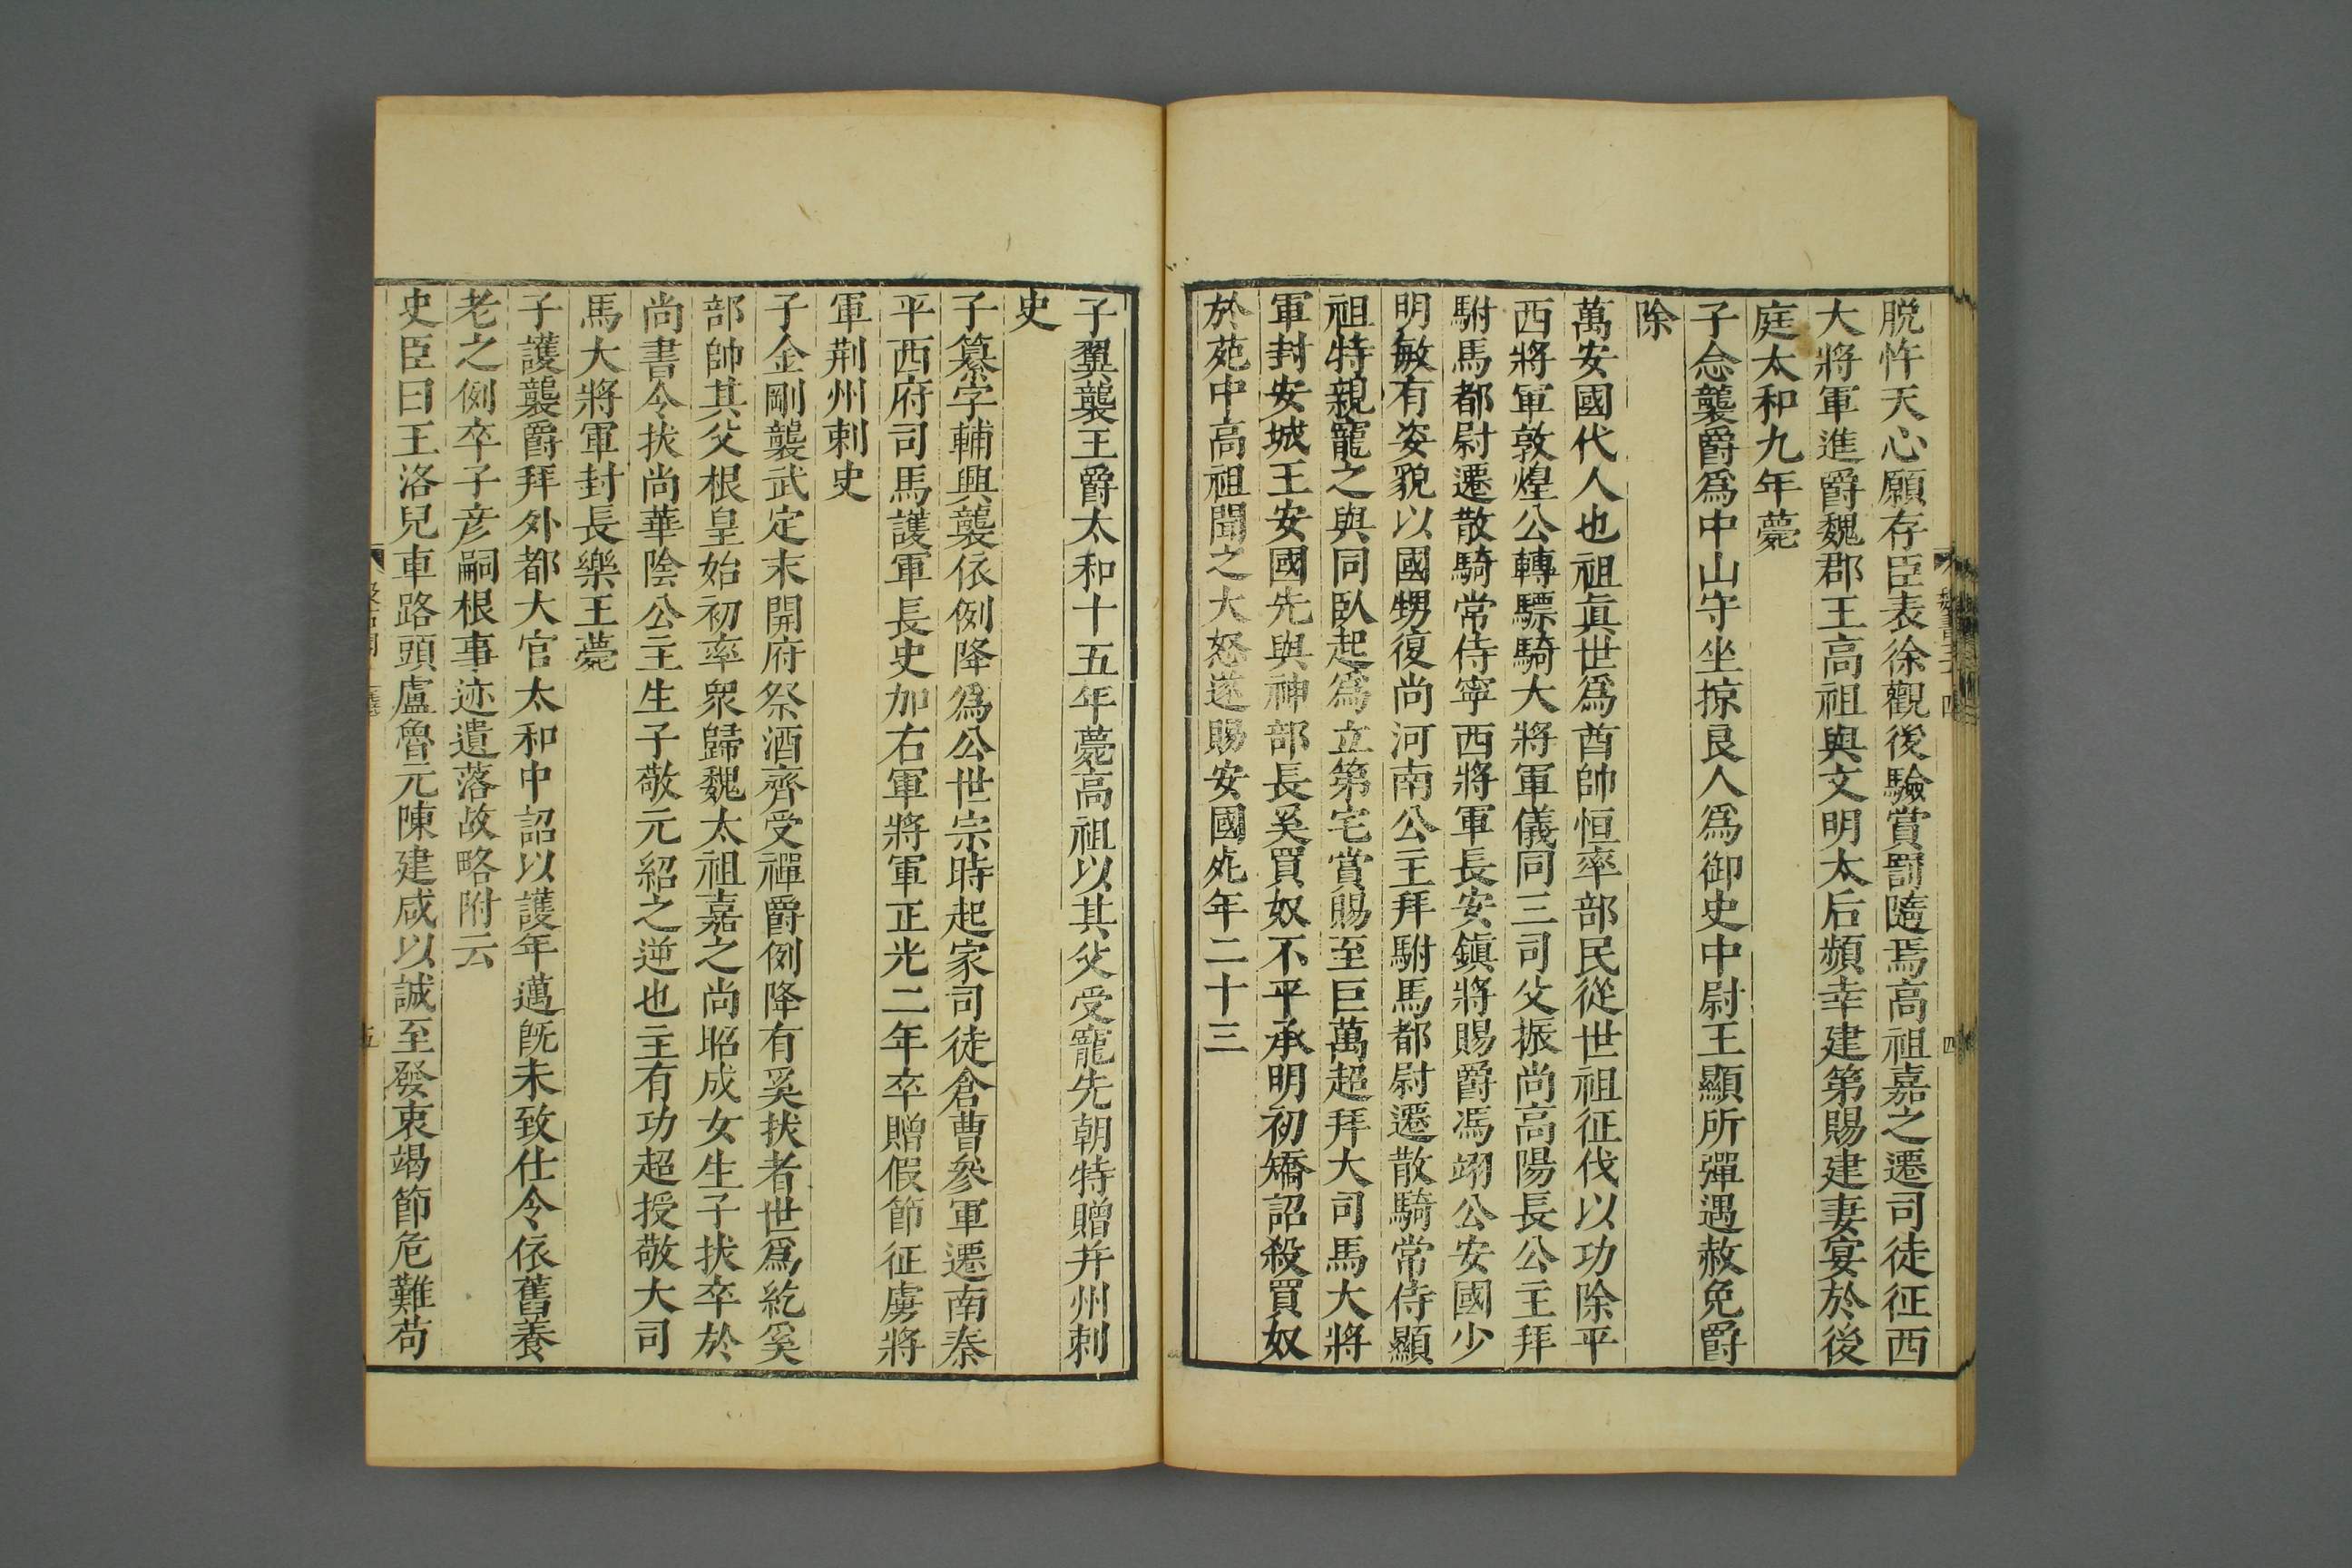 脱忤天心願存臣表徐觀後驗賞罰隨焉高祖嘉之遷司徒征西
大將軍進爵魏郡王高祖與文明太后頻幸建第賜建妻宴於後
庭太和九年薨
子念襲爵爲中山守坐掠良人爲御史中尉王顯所彈遇赦免爵
除
萬安國代人也祖眞世爲酋帥恒率部民從世祖征伐以功除平
西將軍敦煌公轉驃騎大將軍儀同三司父振尚高陽長公主拜
駙馬都尉遷散騎常侍寧西將軍長安鎭將賜爵馮翊公安國少
明敏有姿貌以國甥復尚河南公主拜駙馬都尉遷散騎常侍顯
祖特親寵之與同臥起爲立第宅賞賜至巨萬超拜大司馬大將
軍封安城王安國先與神部長奚買奴不平承明初矯詔殺買奴
於苑中高祖聞之大怒遂賜安國死年二十三
子翼襲王爵太和十五年薨高祖以其父受寵先朝特贈并州刺
史
子纂字輔興襲依例降爲公世宗時起家司徒倉曹參軍遷南秦
平西府司馬護軍長史加右軍將軍正光二年卒贈假節征虜將
軍荆州刺史
子金剛襲武定末開府祭酒齊受禪爵例降有奚扶者世爲紇奚
部帥其父根皇始初率衆歸魏太祖嘉之尚昭成女生子扶卒於
尚書令扶尚華陰公主生子敬元紹之逆也主有功超授敬大司
馬大將軍封長樂王薨
子護襲爵拜外都大官太和中詔以護年邁旣未致仕令依舊養
老之例卒子彦嗣根事迹遺落故略附云
史臣曰王洛兒車路頭盧魯元陳建咸以誠至發衷竭節危難苟